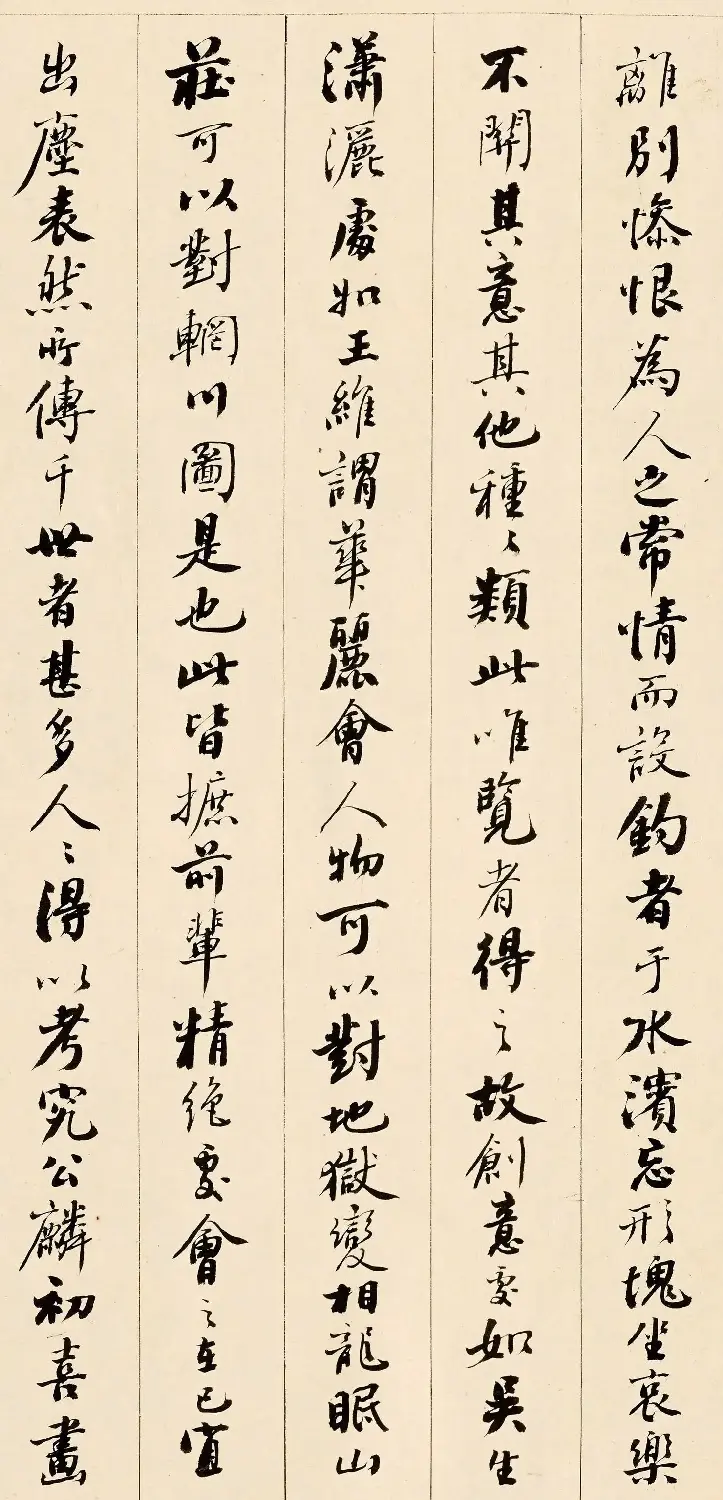 離別慘恨為人之常情而設釣者于水濱忘形塊坐哀樂
不關其意其他種〻類此唯覽者得之故創意處如吳生
瀟灑處如王維謂華麗會人物可以對地獄變相龍眠山
莊可以對輞川圖是也此皆摭前輩精絕處會之在己宜
出塵表然所傳千世者甚多人〻得以考究公麟初喜畫